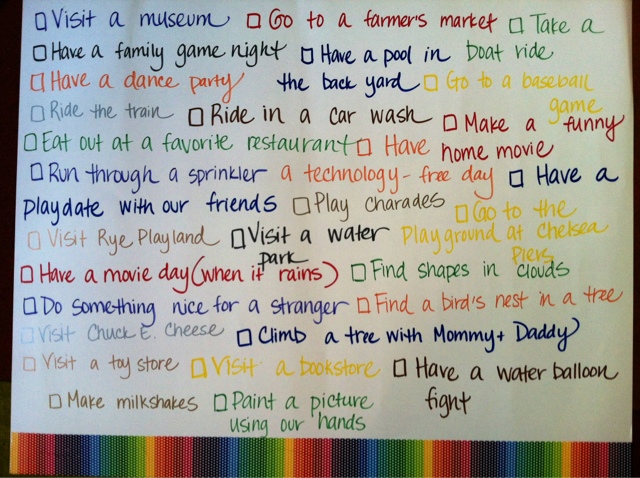 ☐ Visit a museum ☐ Go to a farmer's market ☐ Take a
☐ Have a family game night ☐ Have a pool in boat ride
☐ Have a dance party the back yard ☐ Go to a baseball
☐ Ride the train ☐ Ride in a car wash ☐ Make a funny game
☐ Eat out at a favorite restaurant ☐ Have home movie
☐ Run through a sprinkler a technology-free day ☐ Have a
playdate with our friends ☐ Play charades ☐ Go to the
☐ Visit Rye Playland ☐ Visit a water Playground at Chelsea
park Piers
☐ Have a movie day (when it rains) ☐ Find shapes in clouds
☐ Do something nice for a stranger ☐ Find a bird's nest in a tree
☐ Visit Chuck E. Cheese ☐ Climb a tree with Mommy + Daddy
☐ Visit a toy store ☐ Visit a bookstore ☐ Have a water balloon
☐ Make milkshakes ☐ Paint a picture fight
using our hands